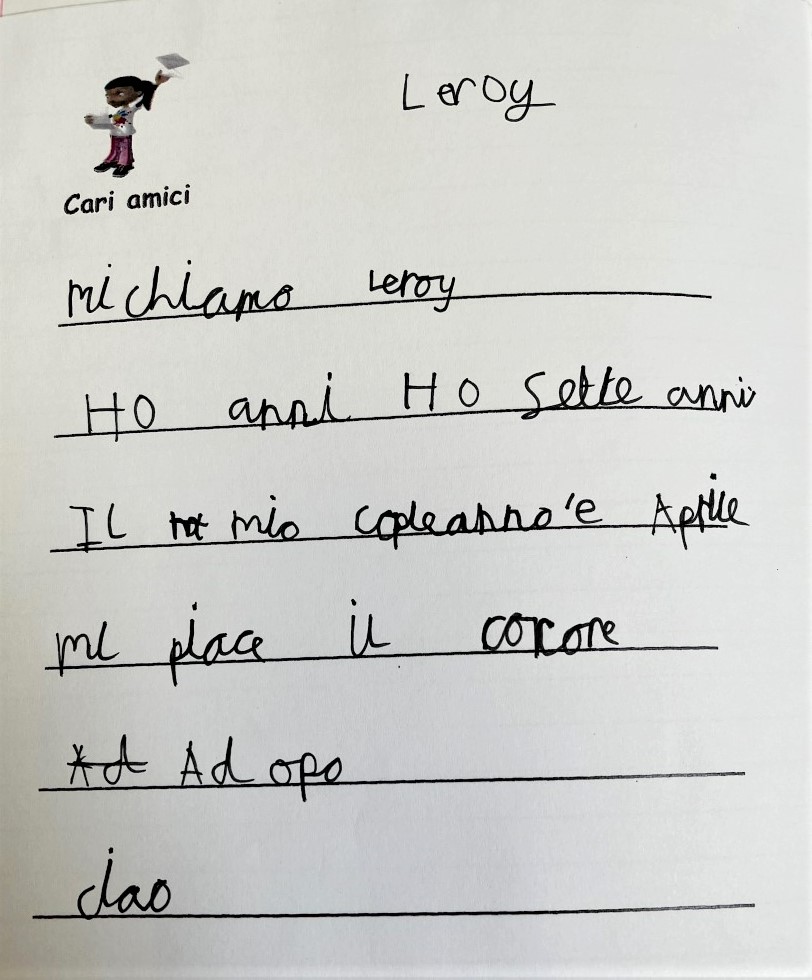 Leroy
Cari amici
mi chiamo Leroy
Ho anni Ho Sette anni
IL mio copleanno'e Aprile
mi piace il corore
Ad opo
ciao